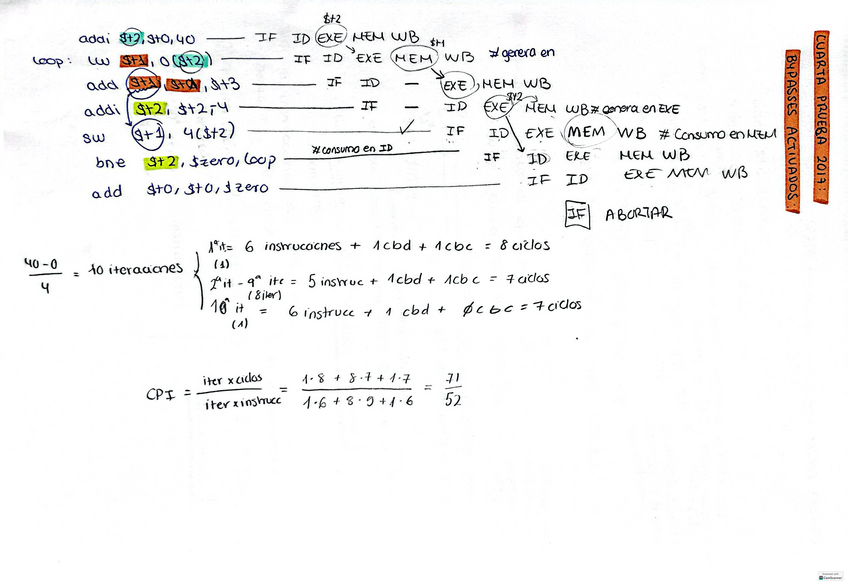 $t2
addi $t2, $t0, 40 IF ID EXE MEM WB
loop: lw $t1, 0($t2) IF ID EXE MEM WB # genera en
$t1
add $t1, $t1, $t3 IF ID — EXE MEM WB
$t2
addi $t2, $t2, -4 IF — ID EXE MEM WB # genera en EXE
sw $t1, 4($t2) ✓ IF ID EXE MEM WB # Consumo en MEM
bne $t2, $zero, loop # consumo en ID IF ID EXE MEM WB
add $t0, $t0, $zero IF ID EXE MEM WB
IF ABORTAR
CUARTA PRUEBA 2017:
BYPASSES ACTIVADOS.
40-0 / 4 = 10 iteraciones
1ª it = 6 instrucciones + 1 cbd + 1 cbc = 8 ciclos
(1)
2ª it - 9ª ite = 5 instruc + 1 cbd + 1 cbc = 7 ciclos
(8 iter)
10ª it = 6 instrucc + 1 cbd + 0 cbc = 7 ciclos
(1)
CPI = iter x ciclos / iter x instrucc = 1·8 + 8·7 + 1·7 / 1·6 + 8·5 + 1·6 = 71 / 52